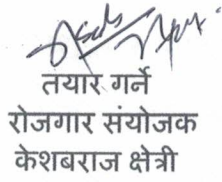 तयार गर्ने
रोजगार संयोजक
केशबराज क्षेत्री